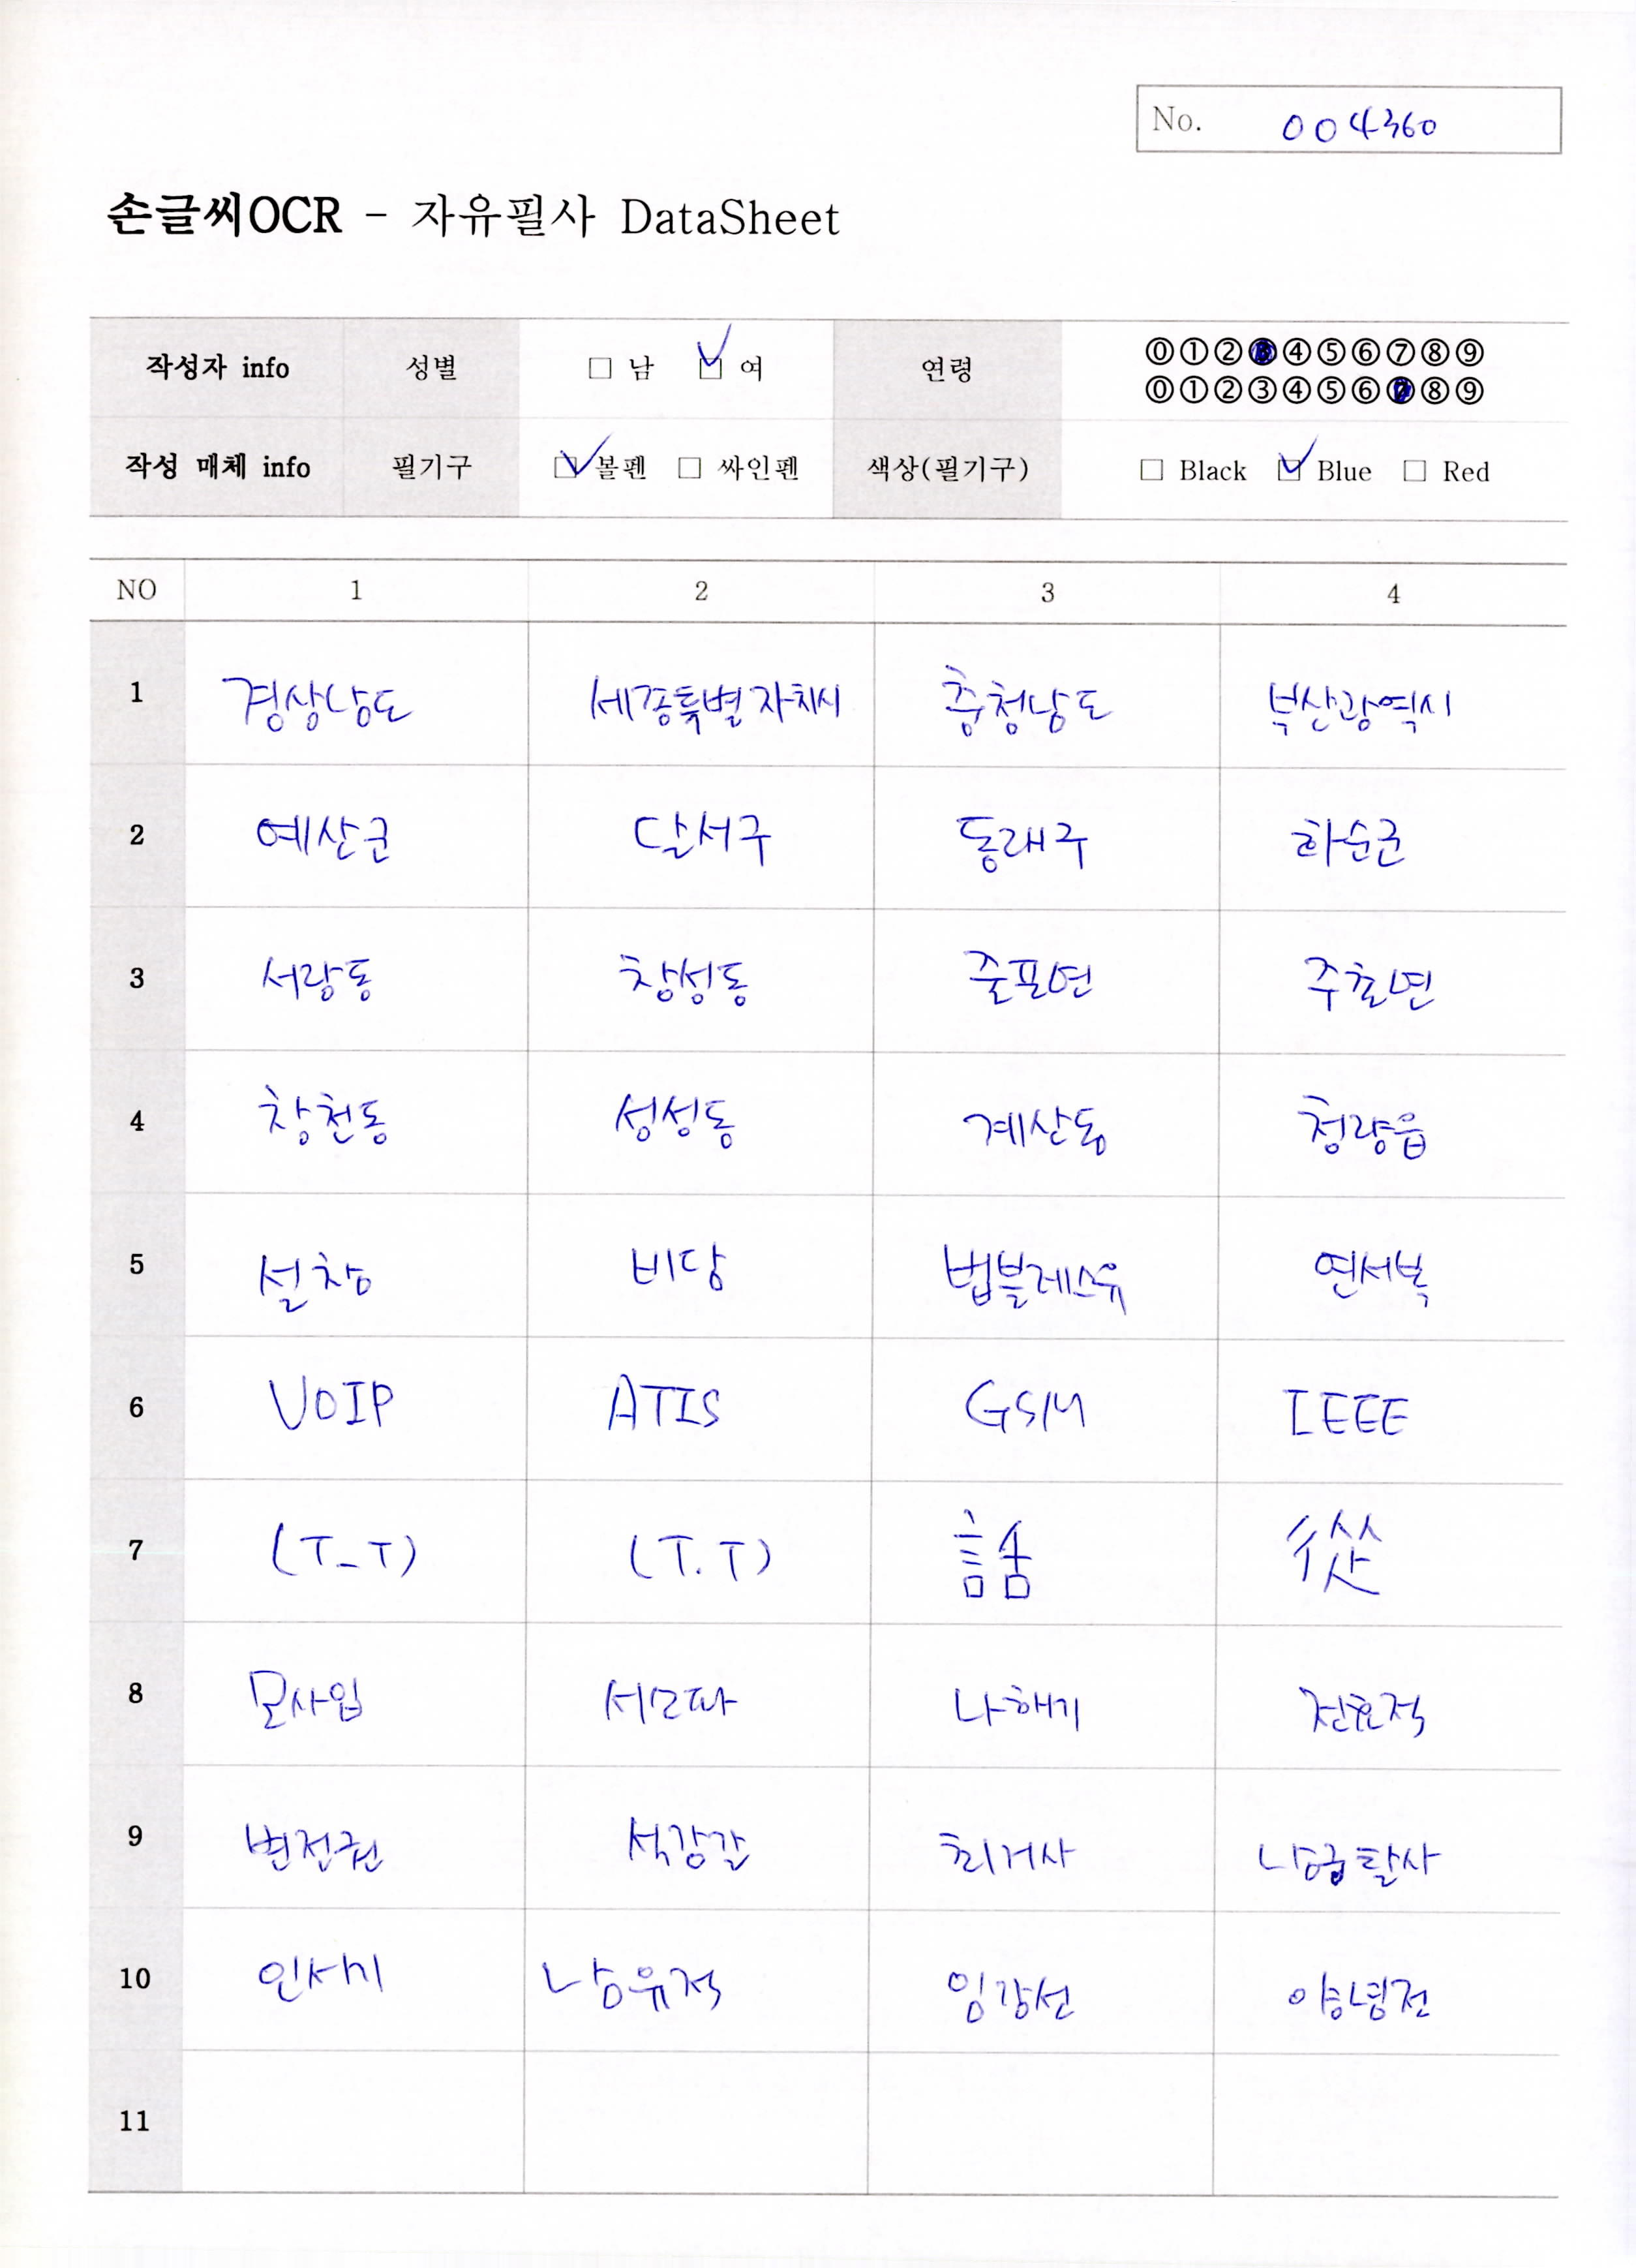 No. 004360
손글씨OCR - 자유필사 DataSheet
작성자 info 성별 □ 남 ☑ 여 연령 ⓪①②③④⑤⑥⑦⑧⑨
⓪①②③④⑤⑥⑦⑧⑨
작성 매체 info 필기구 ☑ 볼펜 □ 싸인펜 색상(필기구) □ Black ☑ Blue □ Red
NO 1 2 3 4
1 경상남도 세종특별자치시 충청남도 부산광역시
2 예산군 달서구 동래구 화순군
3 서랑동 창성동 줄포면 주촌면
4 창천동 성성동 계산동 청량읍
5 설창 비담 법블레스유 연서복
6 VOIP ATIS GSM IEEE
7 (T_T) (T.T) 話 從
8 모사입 서모따 나해기 전효적
9 변전권 석강갈 최거사 남궁탈사
10 인서비 남유적 임강선
11